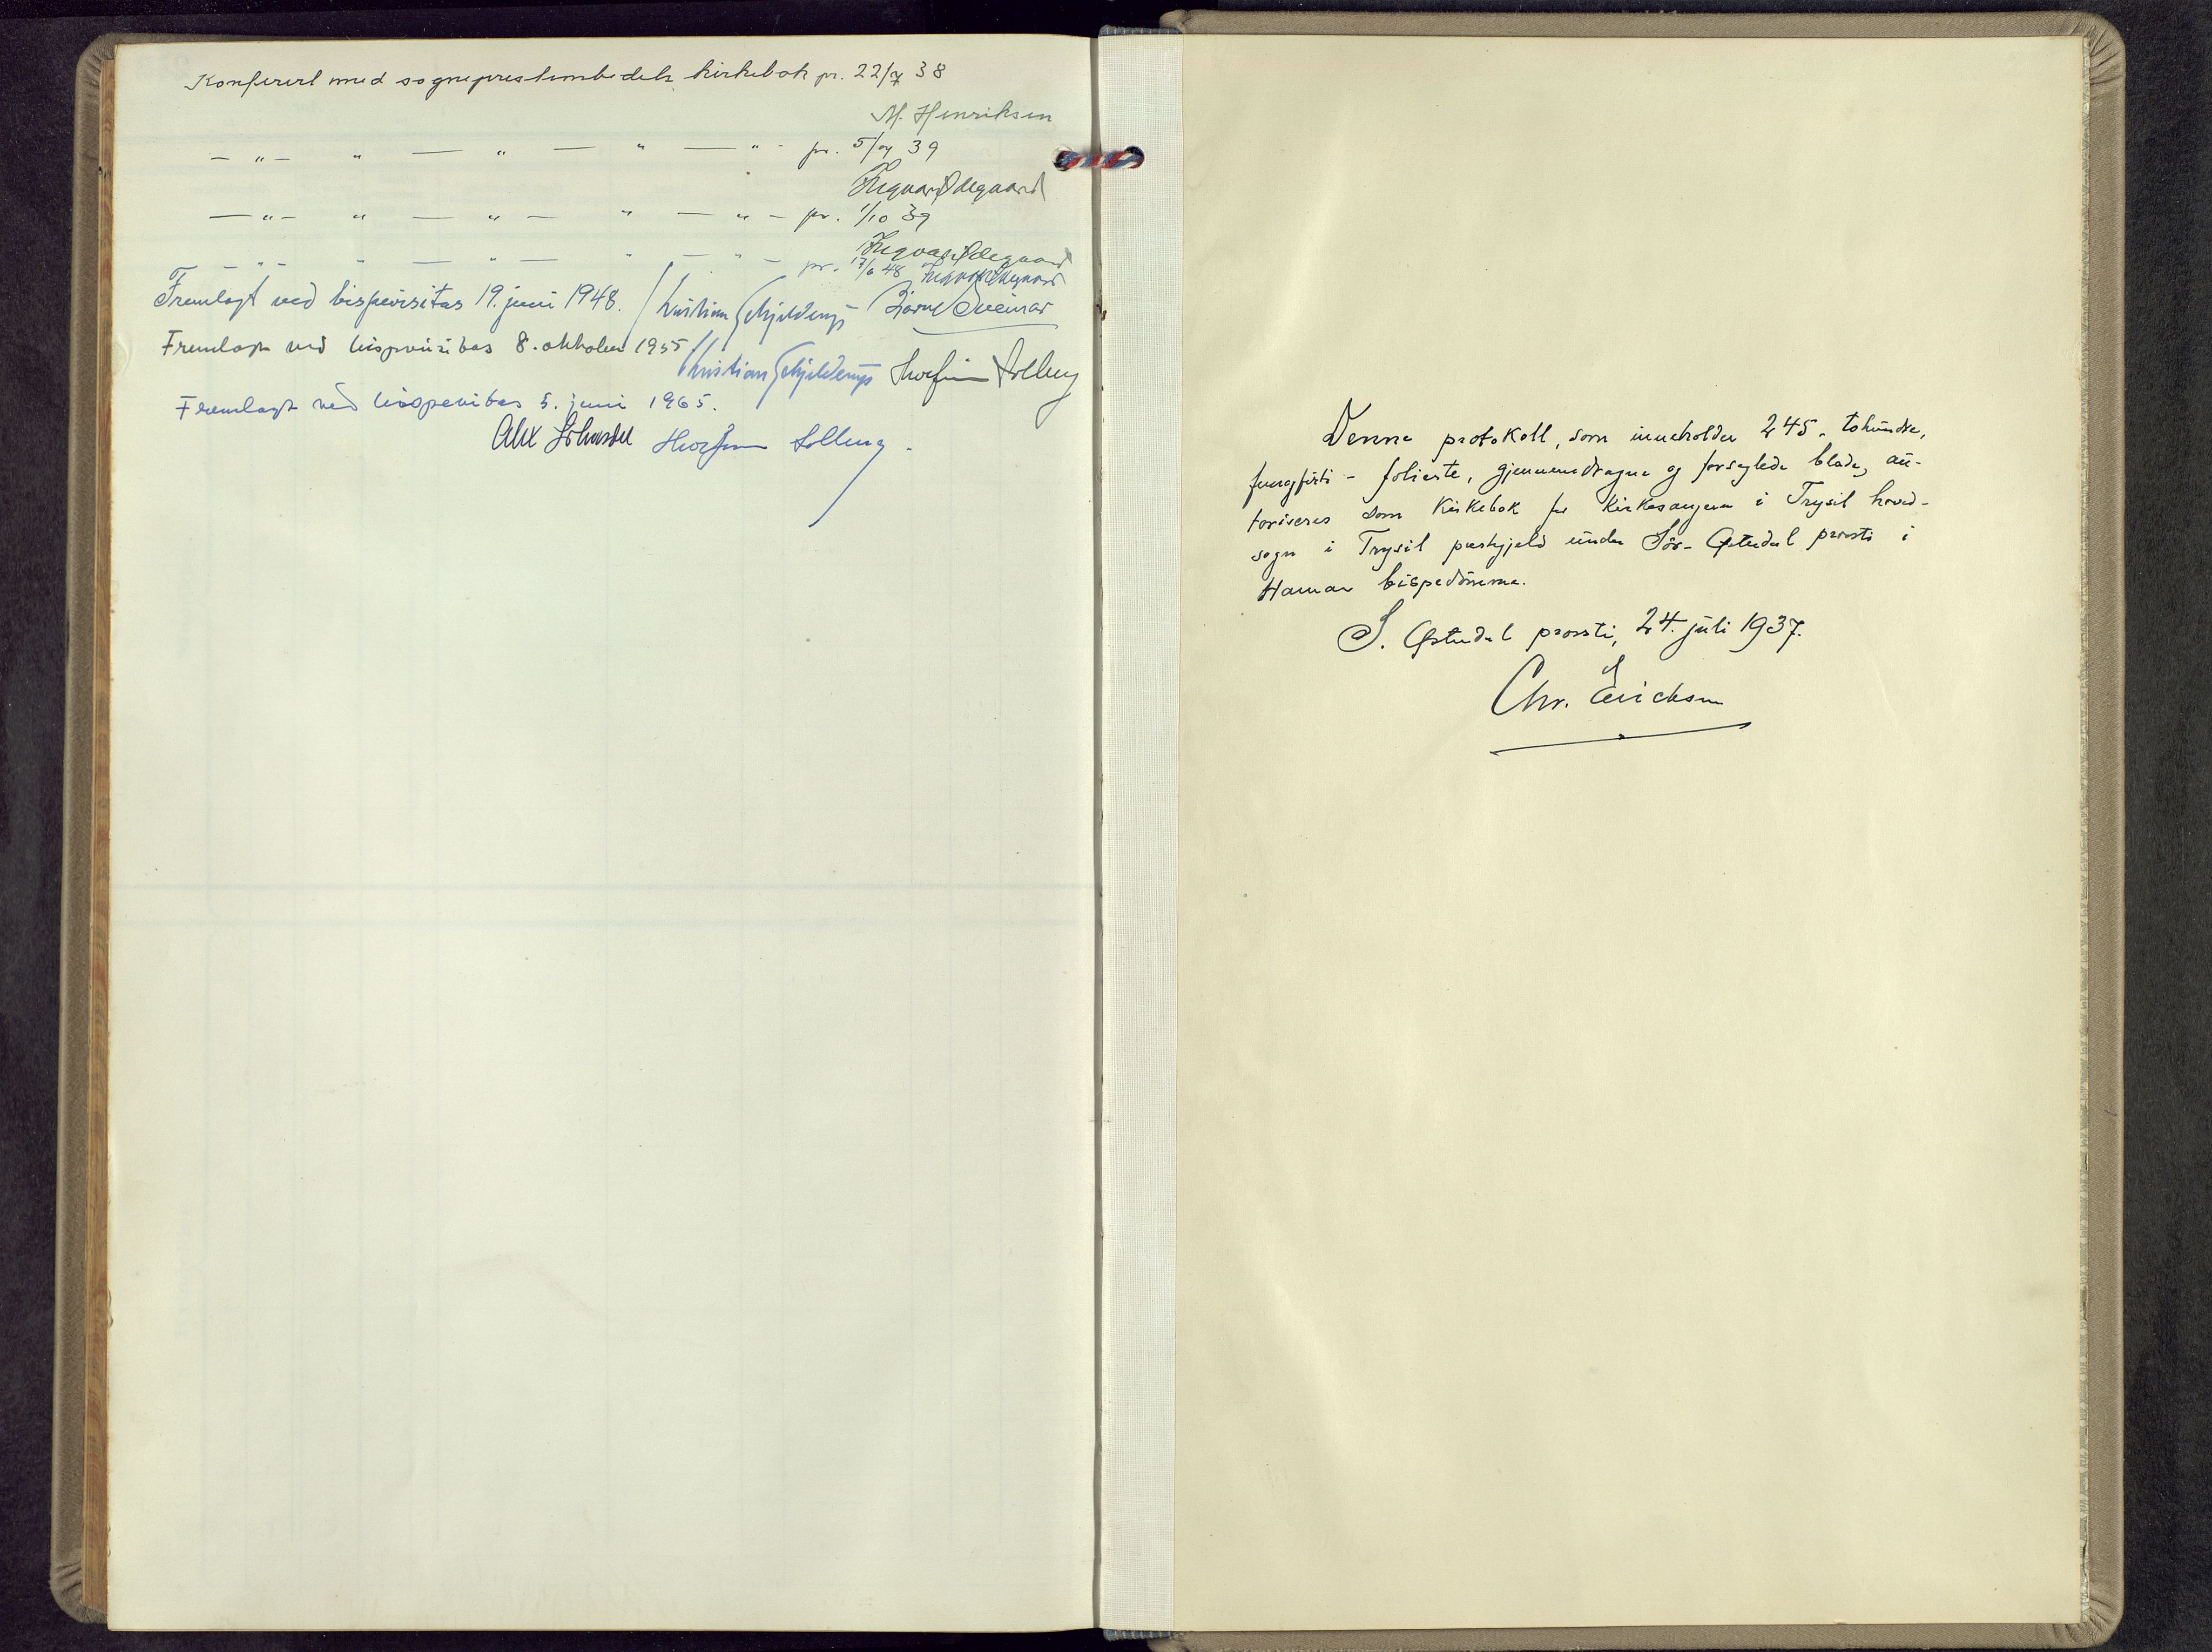 Konferert med sogneprestembedets kirkebok pr. 22/7 38
M. Henriksen
— „ — „ — „ — „ — „ - pr. 5/7 39
Ingvar Ødegaard
— „ — „ — „ — „ — „ — pr. 1/10 39
Ingvar Ødegaard
— „ — „ — „ — „ — „ — pr. 17/6 48 Ingvar Ødegaard
Fremlagt ved bispevisitas 19. juni 1948. / Kristian Schjelderup Bjarne Sveinar
Fremlagt ved bispevisitas 8. oktober 1955
Kristian Schjelderup Thorfinn Solberg
Fremlagt ved bispevisitas 5. juni 1965.
Alex Johnson Thorfinn Solberg.
Denne protokoll, som inneholder 245 - tohundre,
førtifem - folierte, gjennemdragne og forseglede blade, au-
toriseres som kirkebok for kirkesangeren i Trysil hoved-
sogn i Trysil prestegjeld under Sør-Østerdal prosti i
Hamar bispedømme.
S. Østerdal prosti, 24. juli 1937.
Chr. Erichsen